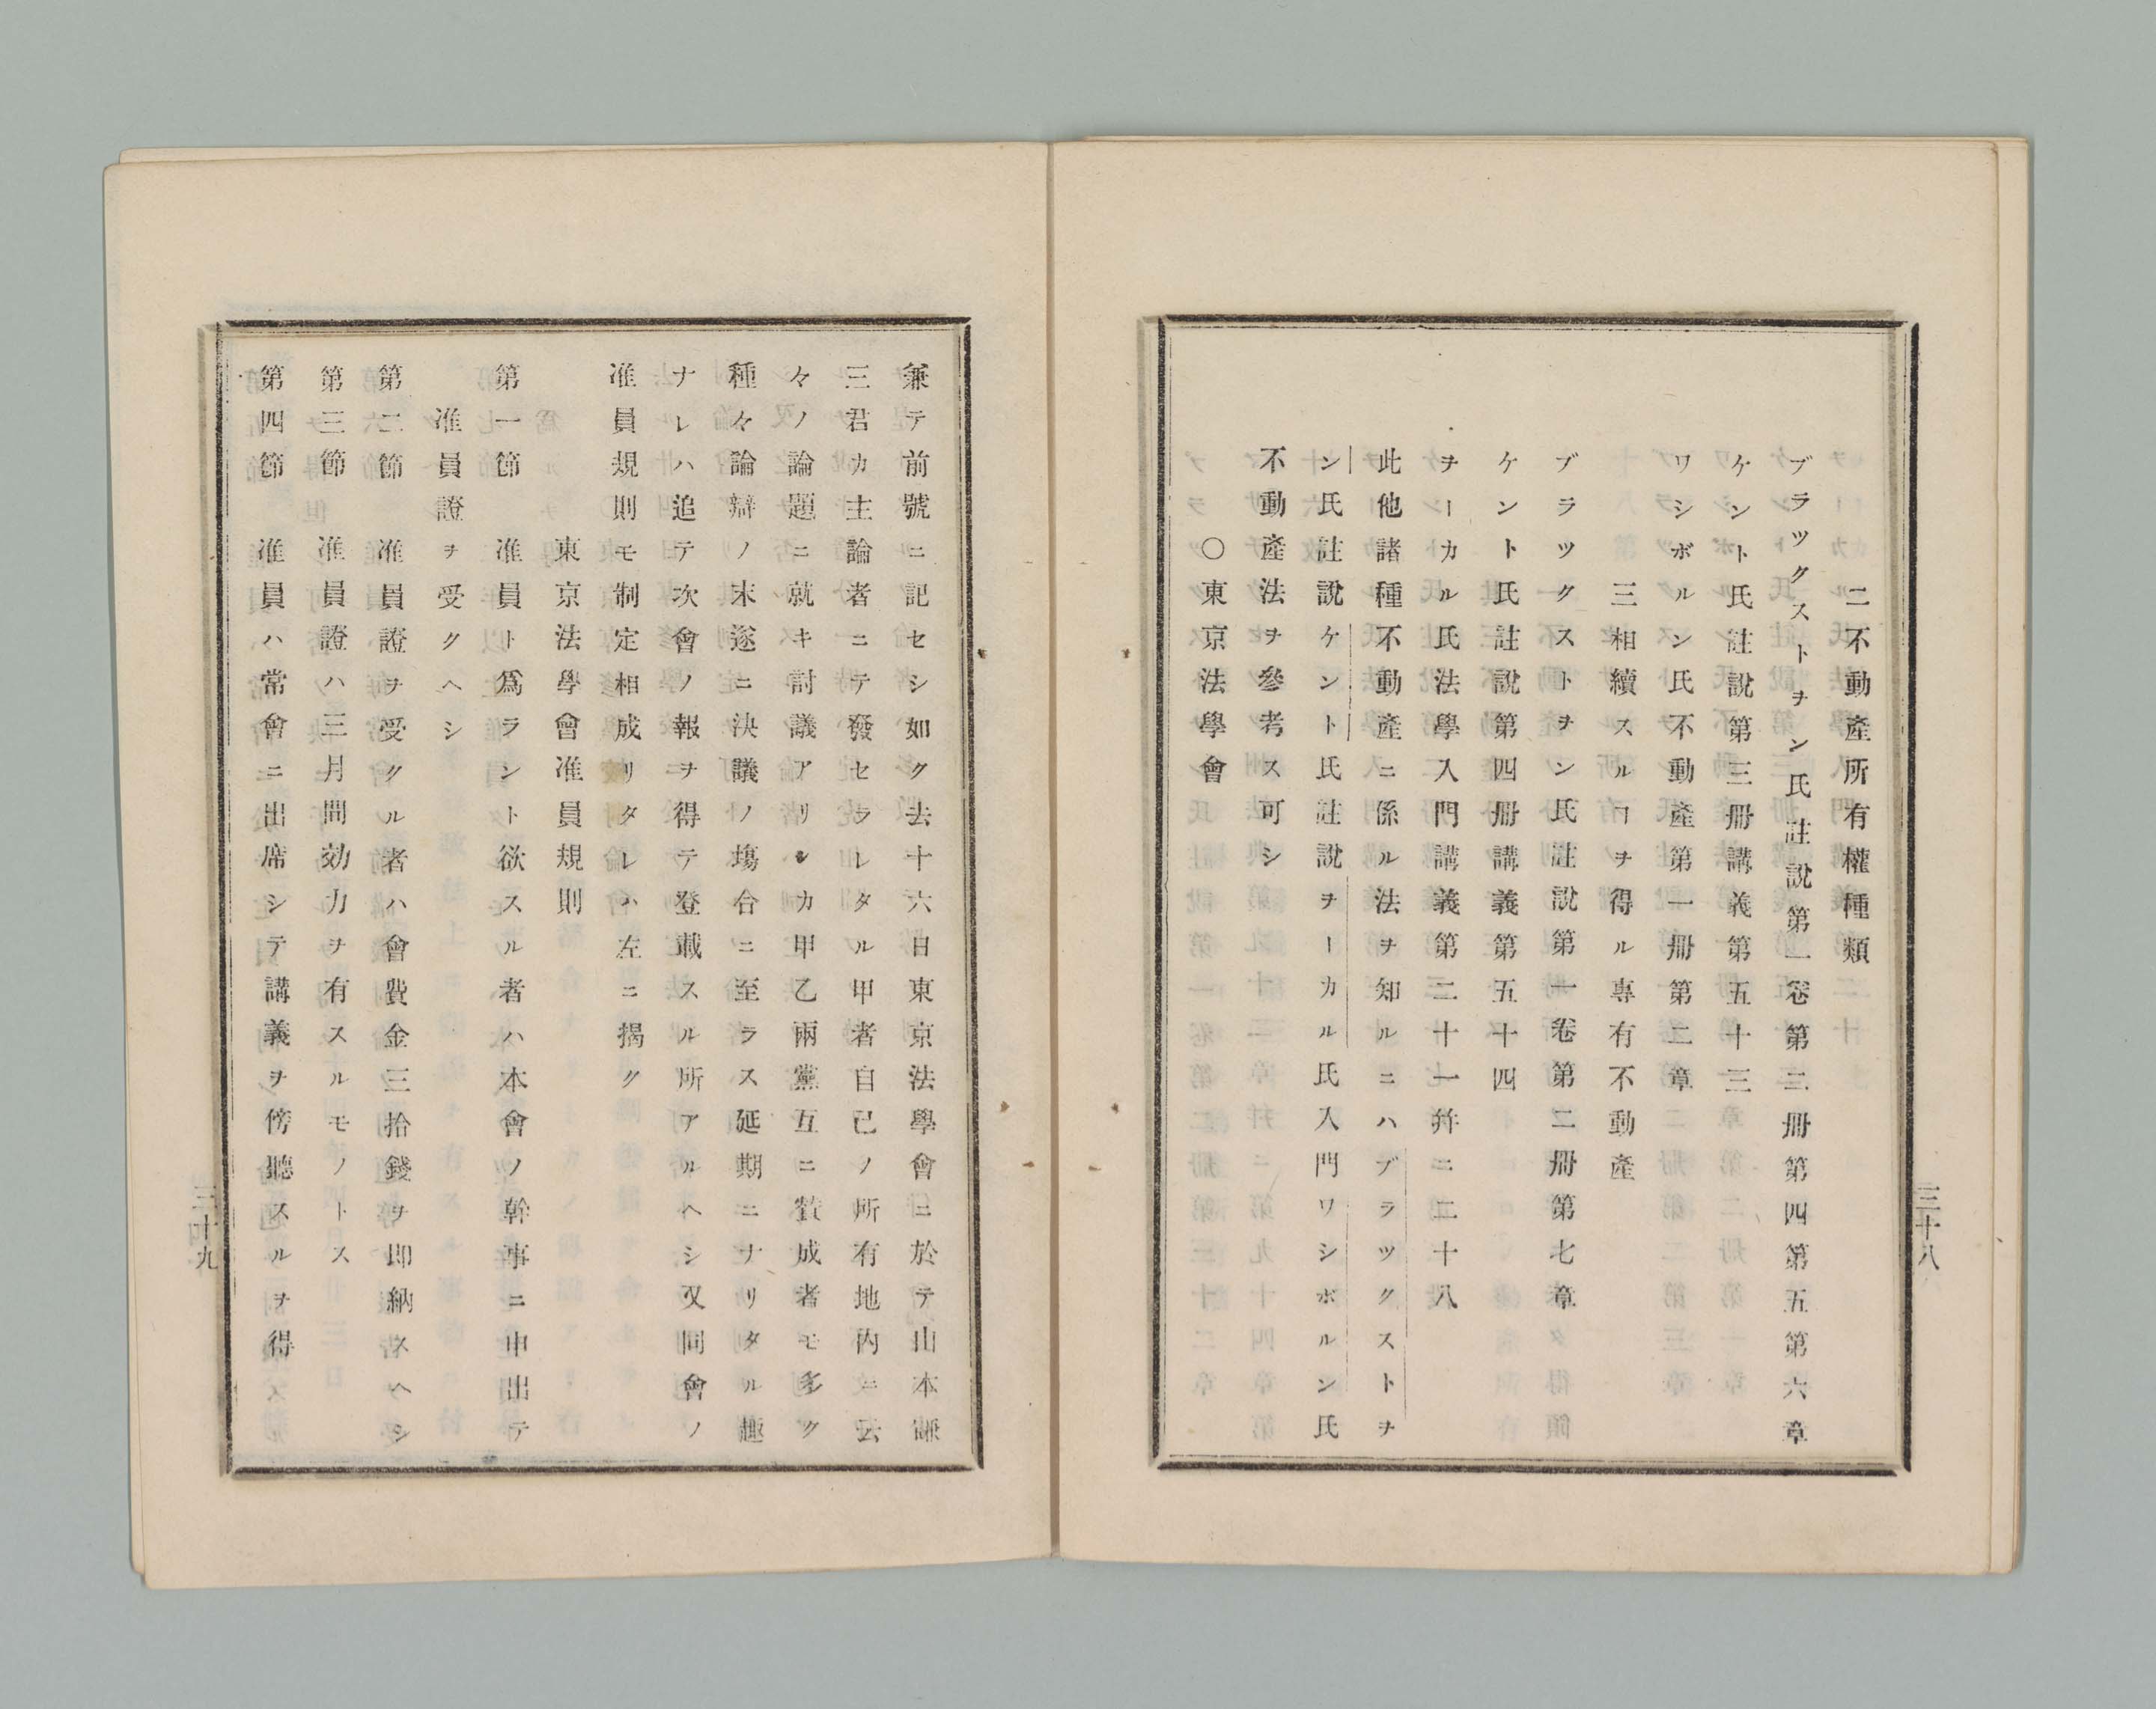 二不動產所有權種類
ブラックストヲン氏註說第一卷第二册第四第五第六章
ケント氏註說第三册講義第五十三
ワシボルン氏不動產第一册第二章
三相續スルヿヲ得ル專有不動產
ブラックストヲン氏註說第一卷第二册第七章
ケント氏註說第四册講義第五十四
ヲーカル氏法學入門講義第二十一幷ニ二十八
此他諸種不動產ニ係ル法ヲ知ルニハブラックストヲ
ン氏註說ケント氏註說ヲーカル氏入門ワシボルン氏
不動產法ヲ參考ス可シ
○東京法學會
三十八
兼テ前號ニ記セシ如ク去十六日東京法學會ニ於テ山本謙
三君カ主論者ニテ發セラレタル甲者自己ノ所有地內ニ云
々ノ論題ニ就キ討議アリシカ甲乙兩黨互ニ贊成者モ多ク
種々論辯ノ末遂ニ決議ノ塲合ニ至ラス延期ニナリタル趣
ナレハ追テ次會ノ報ヲ得テ登載スル所アルヘシ又同會ノ
准員規則モ制定相成リタレハ左ニ揭ク
東京法學會准員規則
第一節 准員ト爲ラント欲スル者ハ本會ノ幹事ニ申出テ
准員證ヲ受クヘシ
第二節 准員證ヲ受クル者ハ會費金三拾錢ヲ卽納スヘシ
第三節 准員證ハ三月間効力ヲ有スルモノトス
第四節 准員ハ常會ニ出席シテ講義ヲ傍聽スルヲ得
三十九